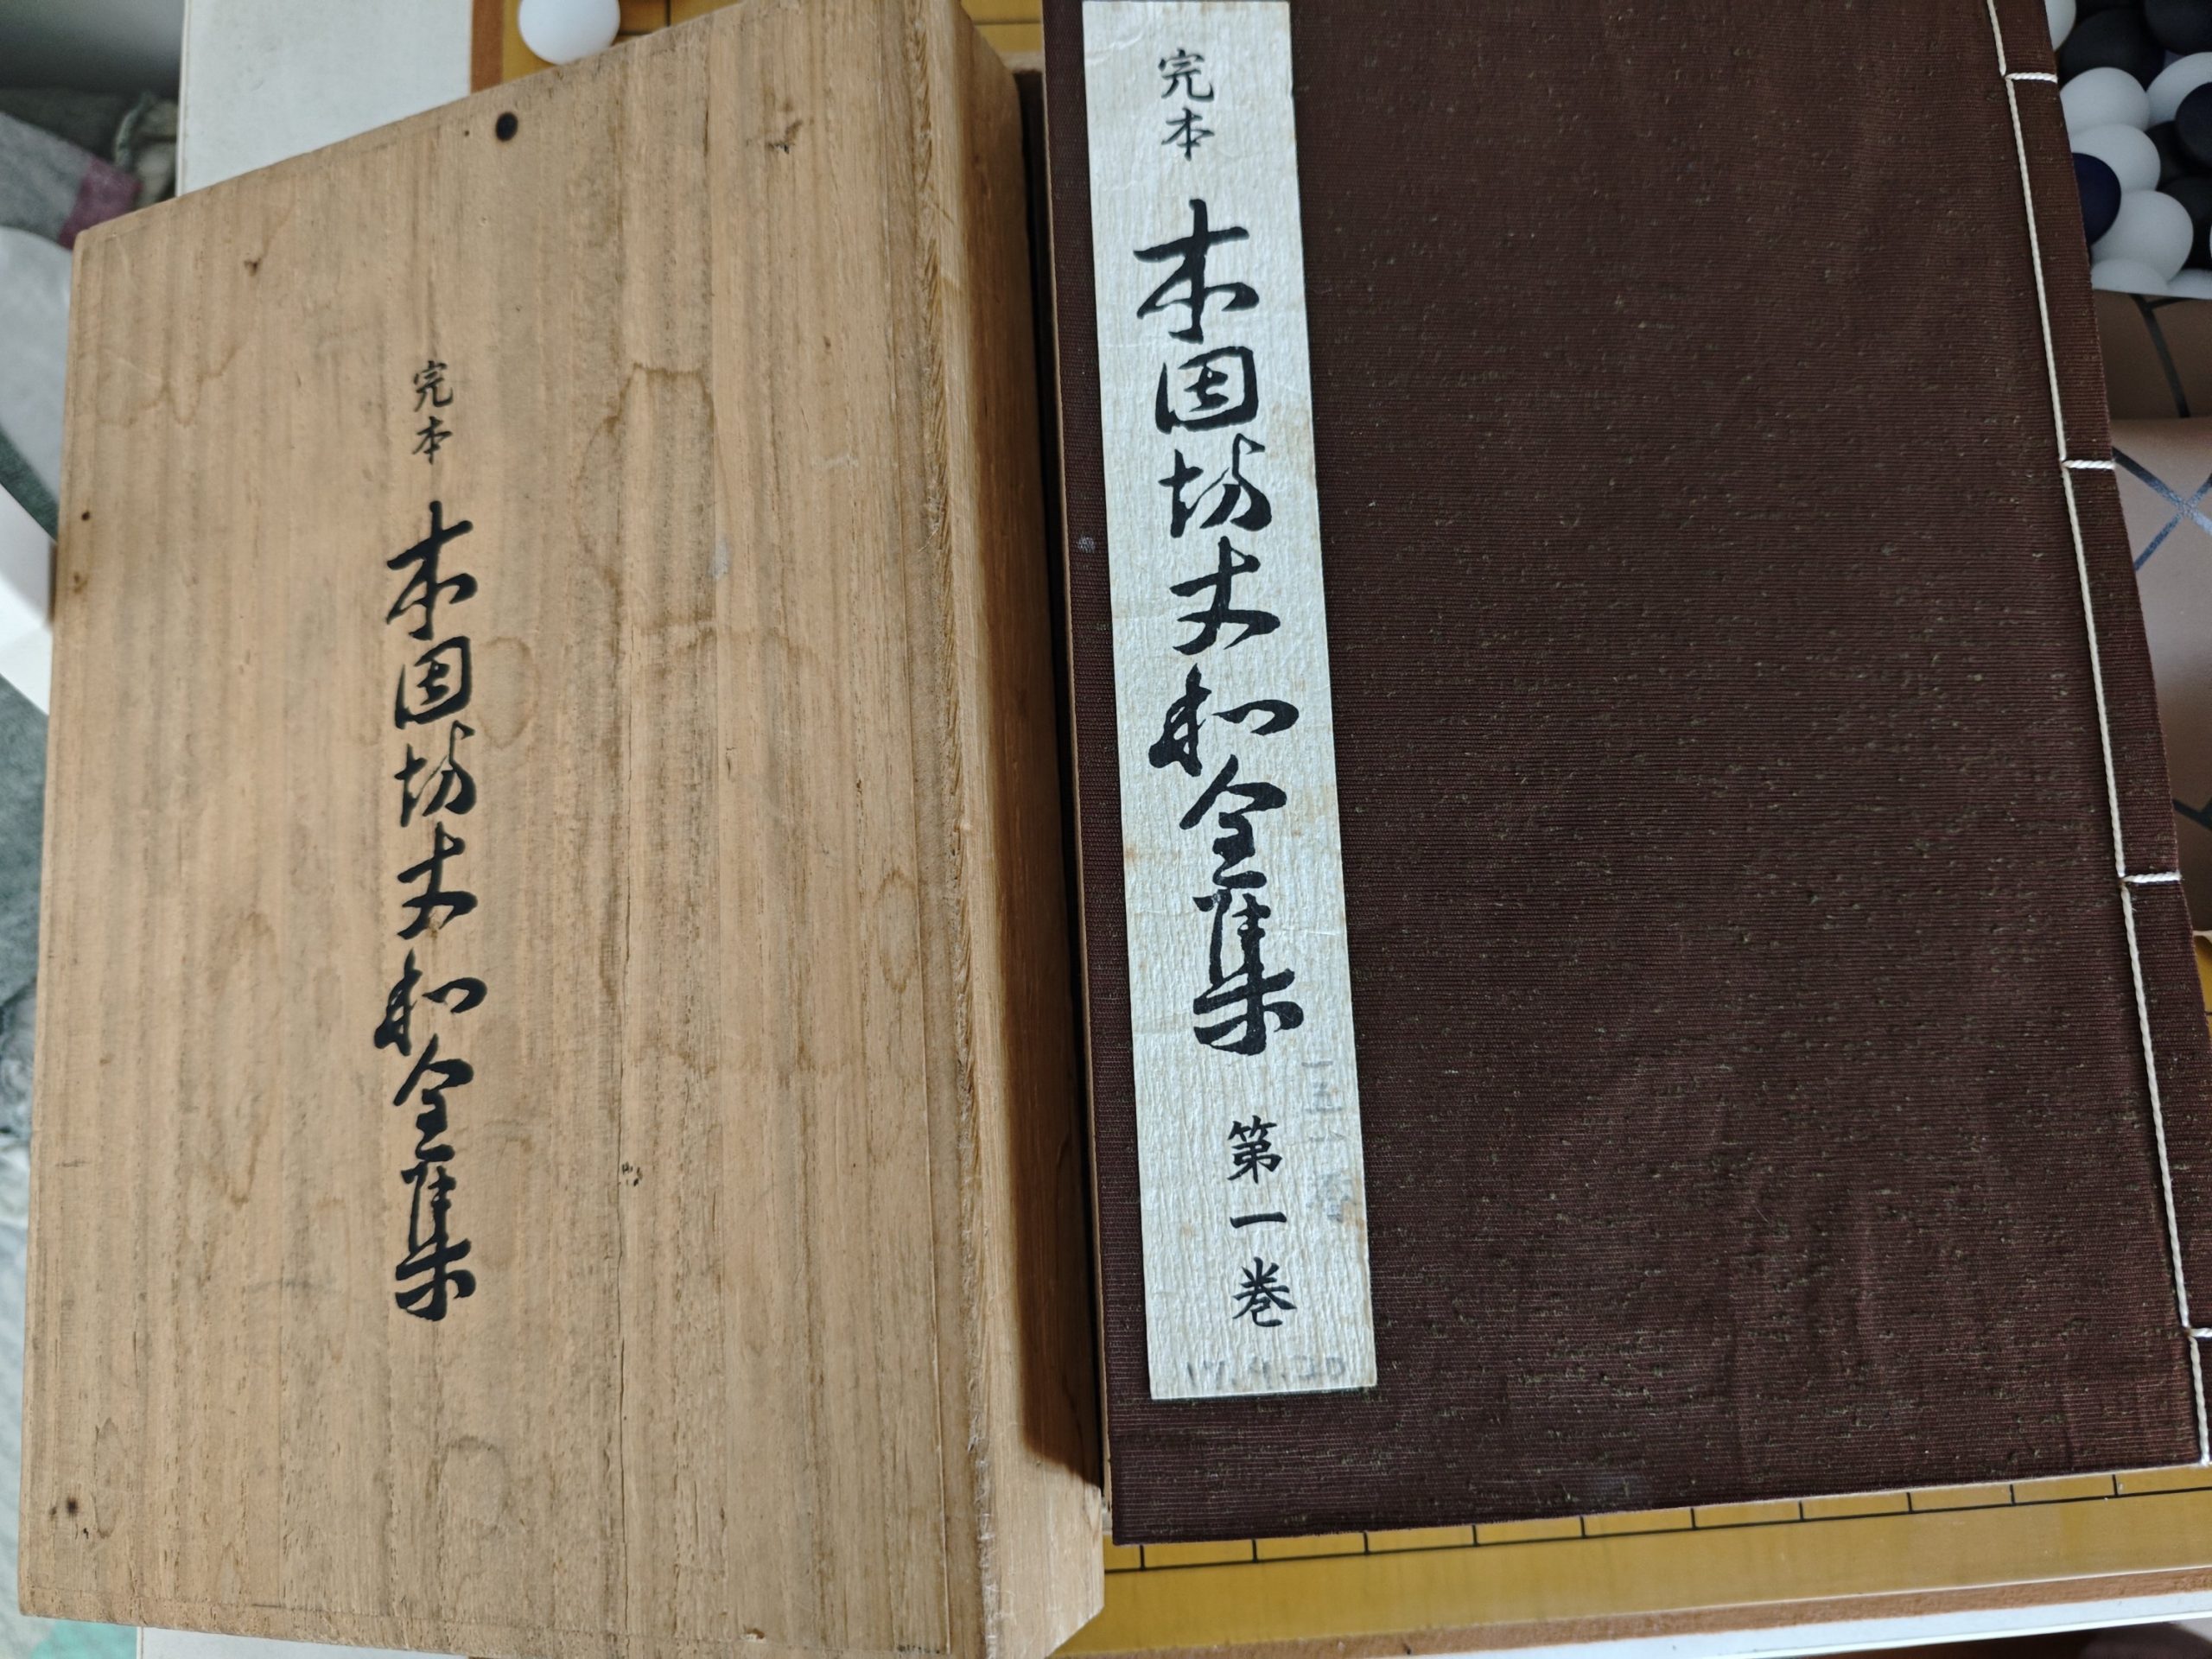 完本
本因坊丈和全集
完本
本因坊丈和全集
第一巻